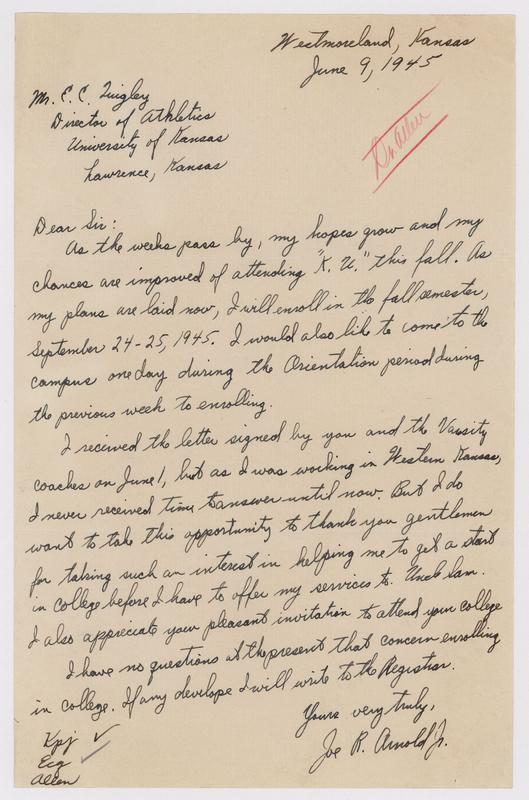 Westmoreland, Kansas
June 9, 1945
Mr. E. C. Quigley
Director of Athletics
University of Kansas
Lawrence, Kansas
Dr. Allen
Dear Sir:
As the weeks pass by, my hopes grow and my
chances are improved of attending "K. U." this fall. As
my plans are laid now, I will enroll in the fall semester,
September 24-25, 1945. I would also like to come to the
campus one day during the Orientation period during
the previous week to enrolling.
I received the letter signed by you and the Varsity
coaches on June 1, but as I was working in Western Kansas,
I never received time to answer until now. But I do
want to take this opportunity to thank you gentlemen
for taking such an interest in helping me to get a start
in college before I have to offer my services to Uncle Sam.
I also appreciate your pleasant invitation to attend your college
I have no questions at the present that concern enrolling
in college. If any develope I will write to the Registrar.
Yours very truly,
Joe R. Arnold Jr.
Kpj ✓
Ecq
Allen